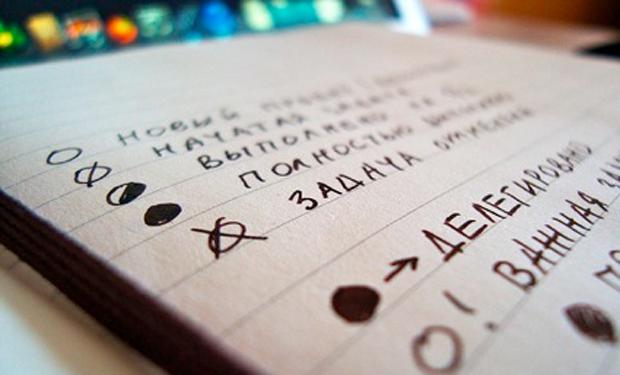 НОВЫЙ ПРОЕКТ
НАЧАТАЯ ЗАДАЧА
ВЫПОЛНЕНО НА
ПОЛНОСТЬЮ ВЫПОЛНЕНО
ЗАДАЧА ОТМЕНЕНА
→ ДЕЛЕГИРОВАНО
! ВАЖНАЯ